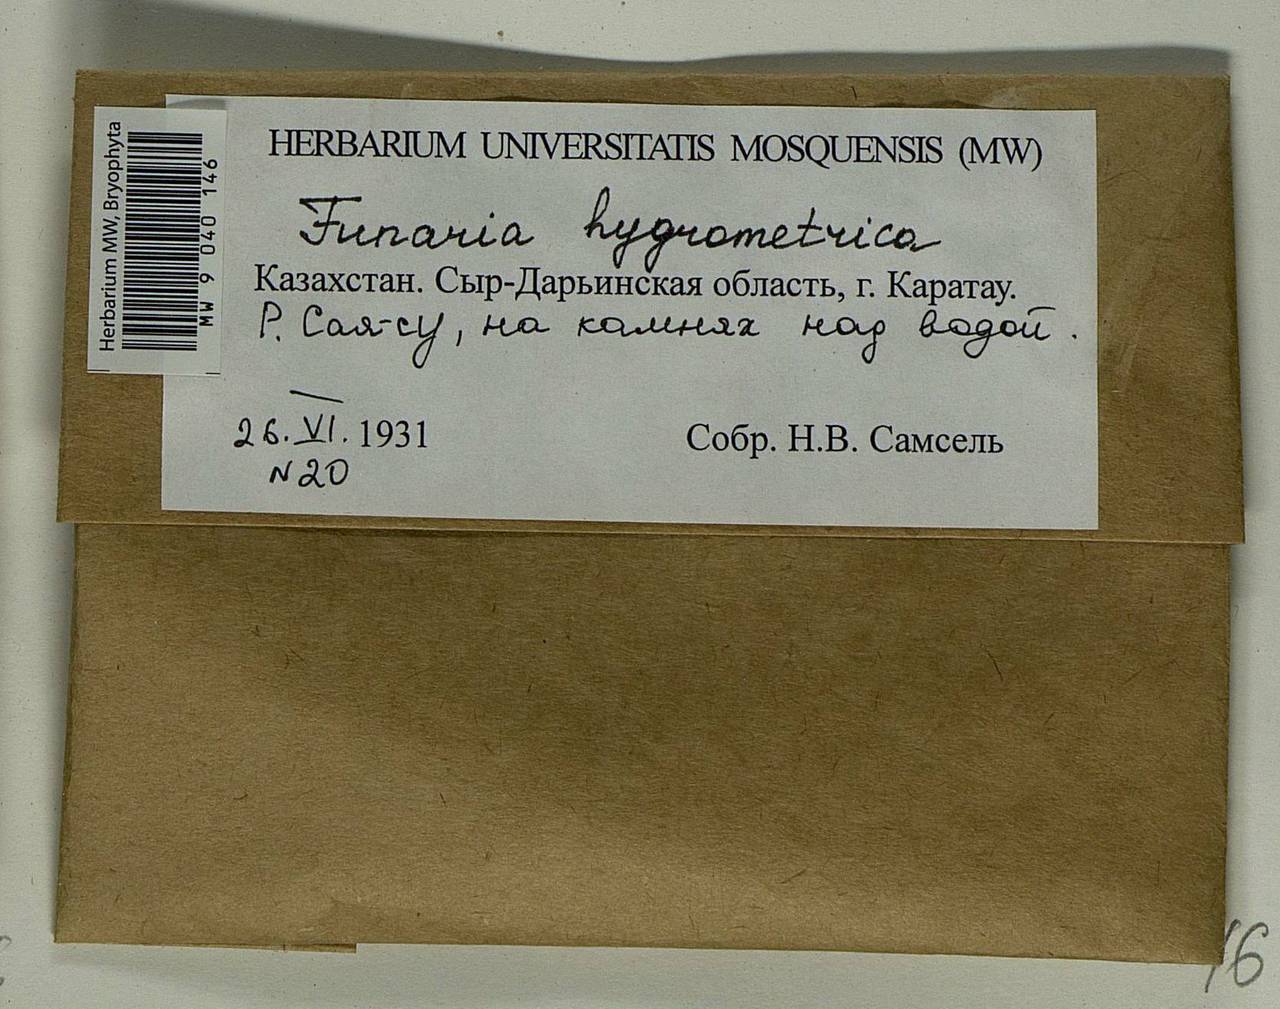 Herbarium MW, Bryophyta
MW 9 040 146
HERBARIUM UNIVERSITATIS MOSQUENSIS (MW)
Funaria hygrometrica
Казахстан. Сыр-Дарьинская область, г. Каратау.
Р. Сая-су, на камнях над водой.
26. VI. 1931
N 20
Собр. Н.В. Самсель
16